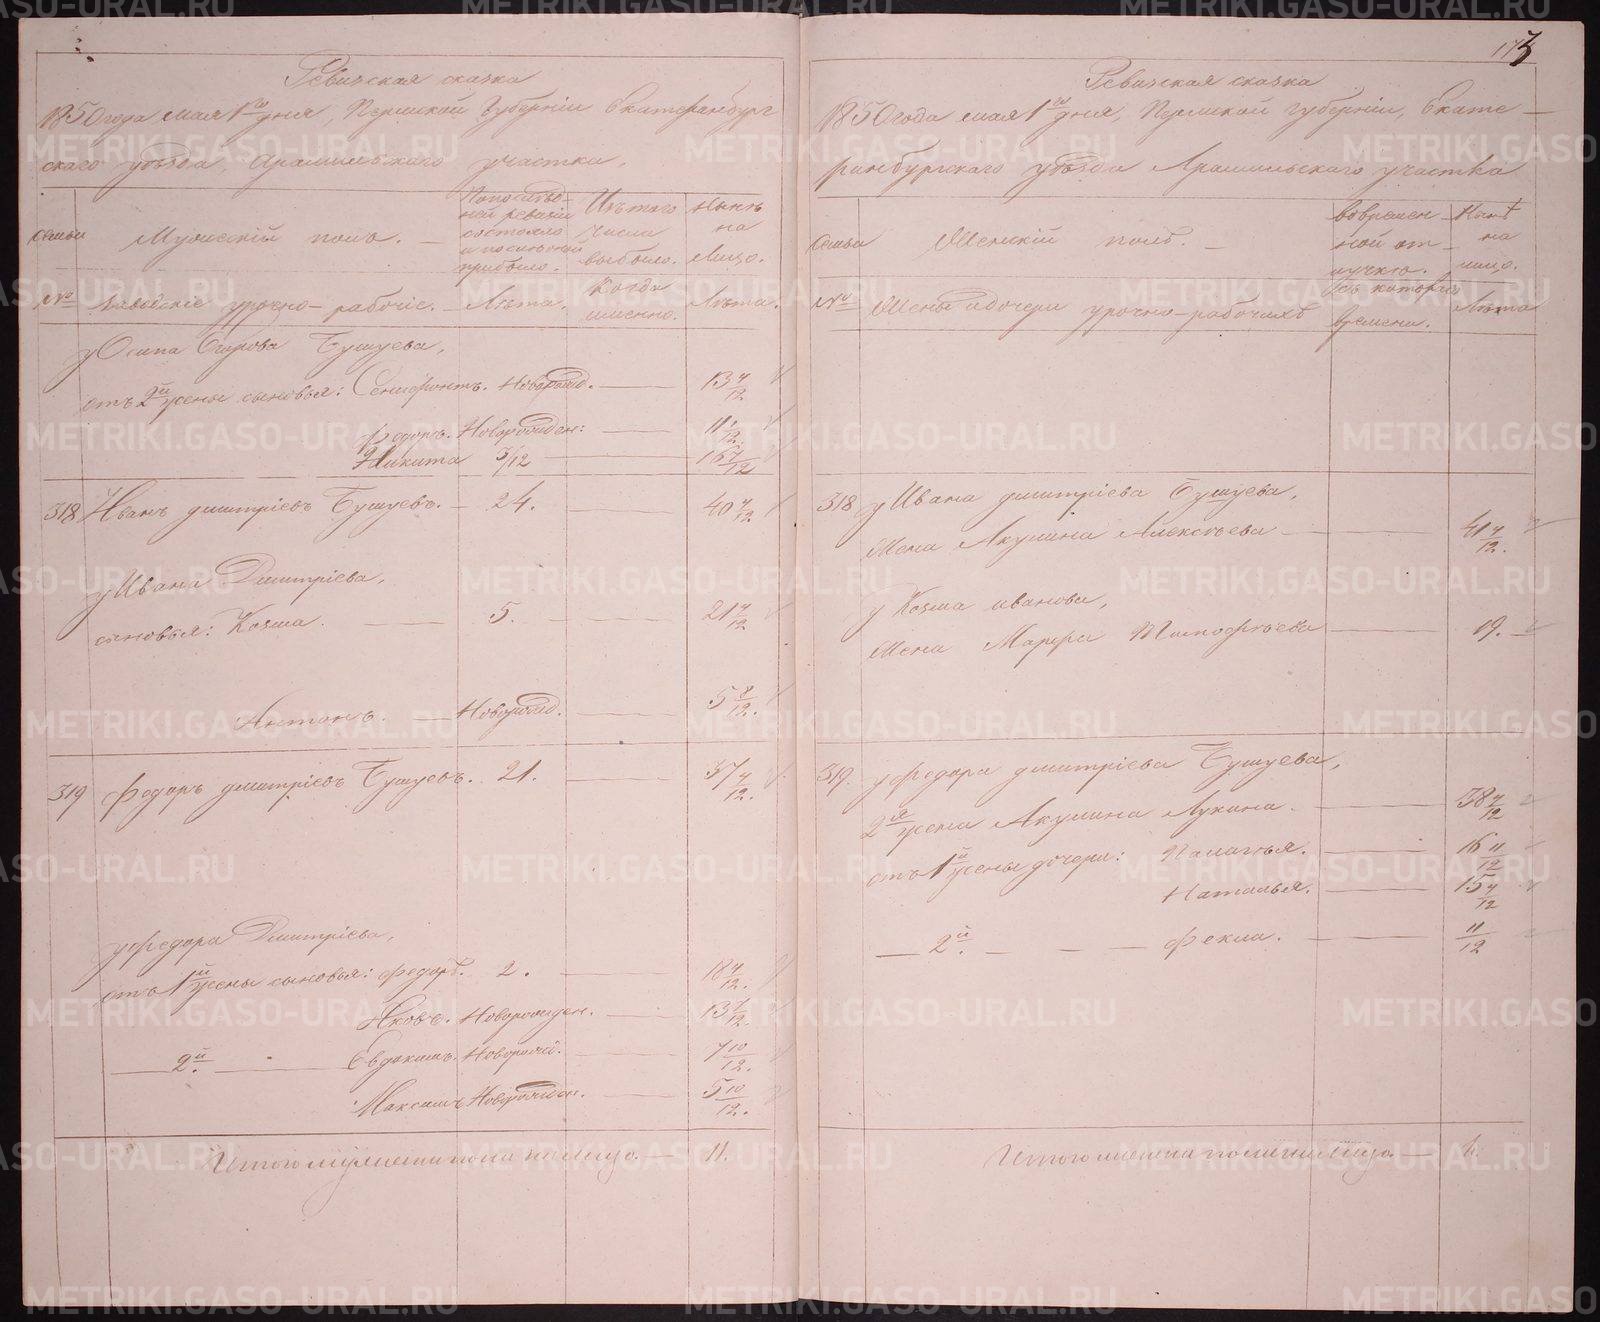 Ревизская сказка
1850 года мая 1го дня, Пермской Губернии Екатеринбург
скаго уѣзда, Арамильскаго участка.
Семьи
Мужескій полъ.
По послѣд-
ней ревизіи
состояло
и послѣ оной
прибыло.
Изъ того
числа
выбыло.
Нынѣ
на
лицо.
№
Заводскіе урочно-рабочіе.
Лѣта.
Когда
именно.
Лѣта.
у Осипа Егорова Бушуева,
отъ 2й жены сыновья: Новорожд. 13 4/12
Федоръ. Новорожден: 11
Никита 3/12
318 Иванъ Дмитріевъ Бушуевъ. 24. 40 4/12
у Ивана Дмитріева,
сыновья: Козма. 5. 21 4/12
Антонъ. Новорожд. 5 8/12.
319 Федоръ Дмитріевъ Бушуевъ. 21. 37 4/12.
у Федора Дмитріева,
отъ 1й жены сыновья: Федоръ. 2. 18 4/12.
Яковъ. Новорожден. 13
2й. Евдокимъ. Новорожд. 7 10/12.
Максимъ Новорожден. 5 10/12.
Итого мужеска пола на лицо. 11.
173
Ревизская сказка
1850 года мая 1го дня, Пермской Губерніи, Екате-
ринбургскаго уѣзда Арамильскаго участка
Семьи
Женскій полъ.
Во времен
ной от-
лучкѣ.
Нынѣ
на
лицо.
№
Жены и дочери урочно-рабочихъ
Съ котораго
времени.
Лѣта
318 у Ивана Дмитріева Бушуева,
Жена Акулина Алексѣева 41 4/12.
у Козма Иванова,
Жена Марфа Тимофѣева 19.
319. у Федора Дмитріева Бушуева,
2я жена Акулина Лукина. 38 4/12
отъ 1й жены дочери: Палагѣя. 16 11/12
Наталья. 15 4/12
2й. Фекла. 11/12
Итого женска пола на лицо. 6.
METRIKI.GASO-URAL.RU